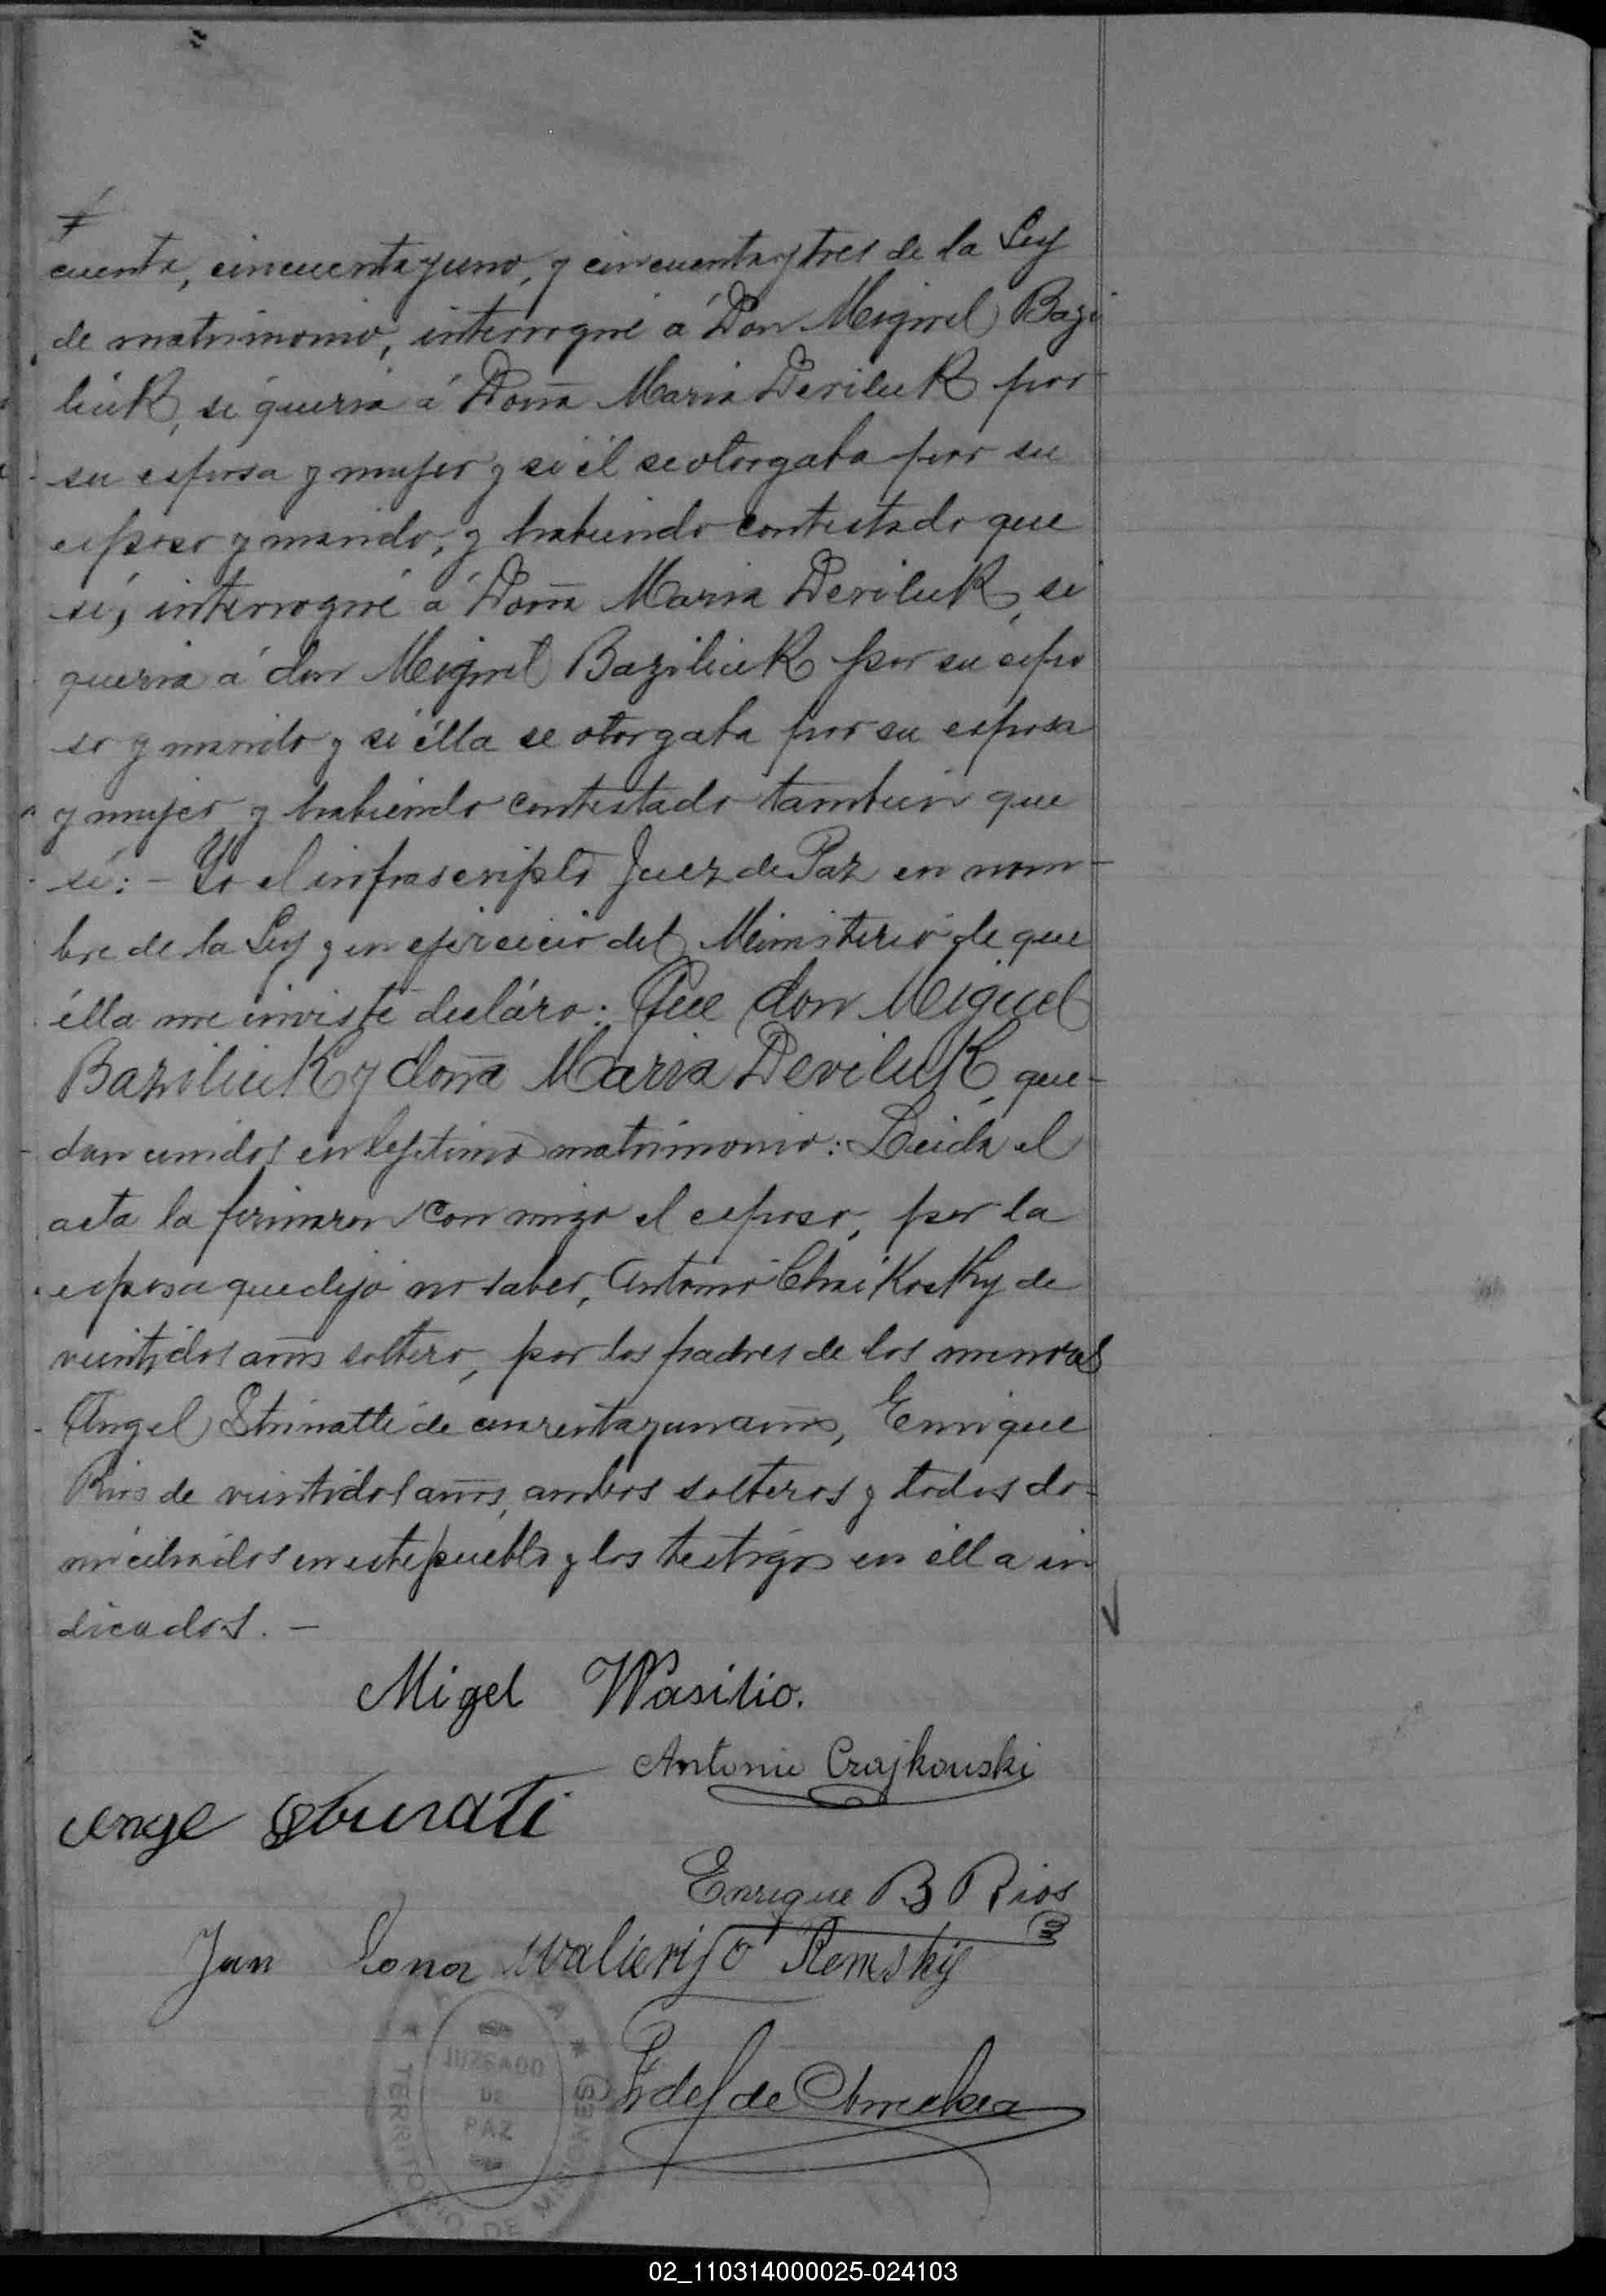 cuenta, cincuenta y uno, y cincuenta y tres de la Ley
de matrimonio, interrogué á Don Miguel Bazi
liuk, si queria á Doña Maria Deviluk por
su esposa y mujer y si él se otorgaba por su
esposo y marido, y habiendo contestado que
si, interrogué á Doña Maria Deviluk, si
queria á don Miguel Baziliuk por su espo
so y marido y si élla se otorgaba por su esposa
y mujer y habiendo contestado tambien que
si: - Yo el infrascripto Juez de Paz en nom-
bre de la Ley y en ejercicio del Ministerio de que
élla me inviste decláro: Que don Miguel
Baziliuk y doña Maria Deviluk, que-
dan unidos en lejitimo matrimonio: Leida el
acta la firmaron con migo el esposo, por la
esposa que dijo no saber, Antonio Chaikosky de
veintidos años soltero, por los padres de los menores
Angel Strinatti de cuarenta y un años, Enrique
Rios de veintidos años, ambos solteros y todos do-
miciliados en este pueblo y los testigos en élla in
dicados. -
Migel Wasilio.
Antonio Czajkouski
Enrique B Rios
Jan Walierijo Remskij
Fidel de
JUZGADO
DE
PAZ
TERRITORIO DE MISIONES
02_110314000025-024103